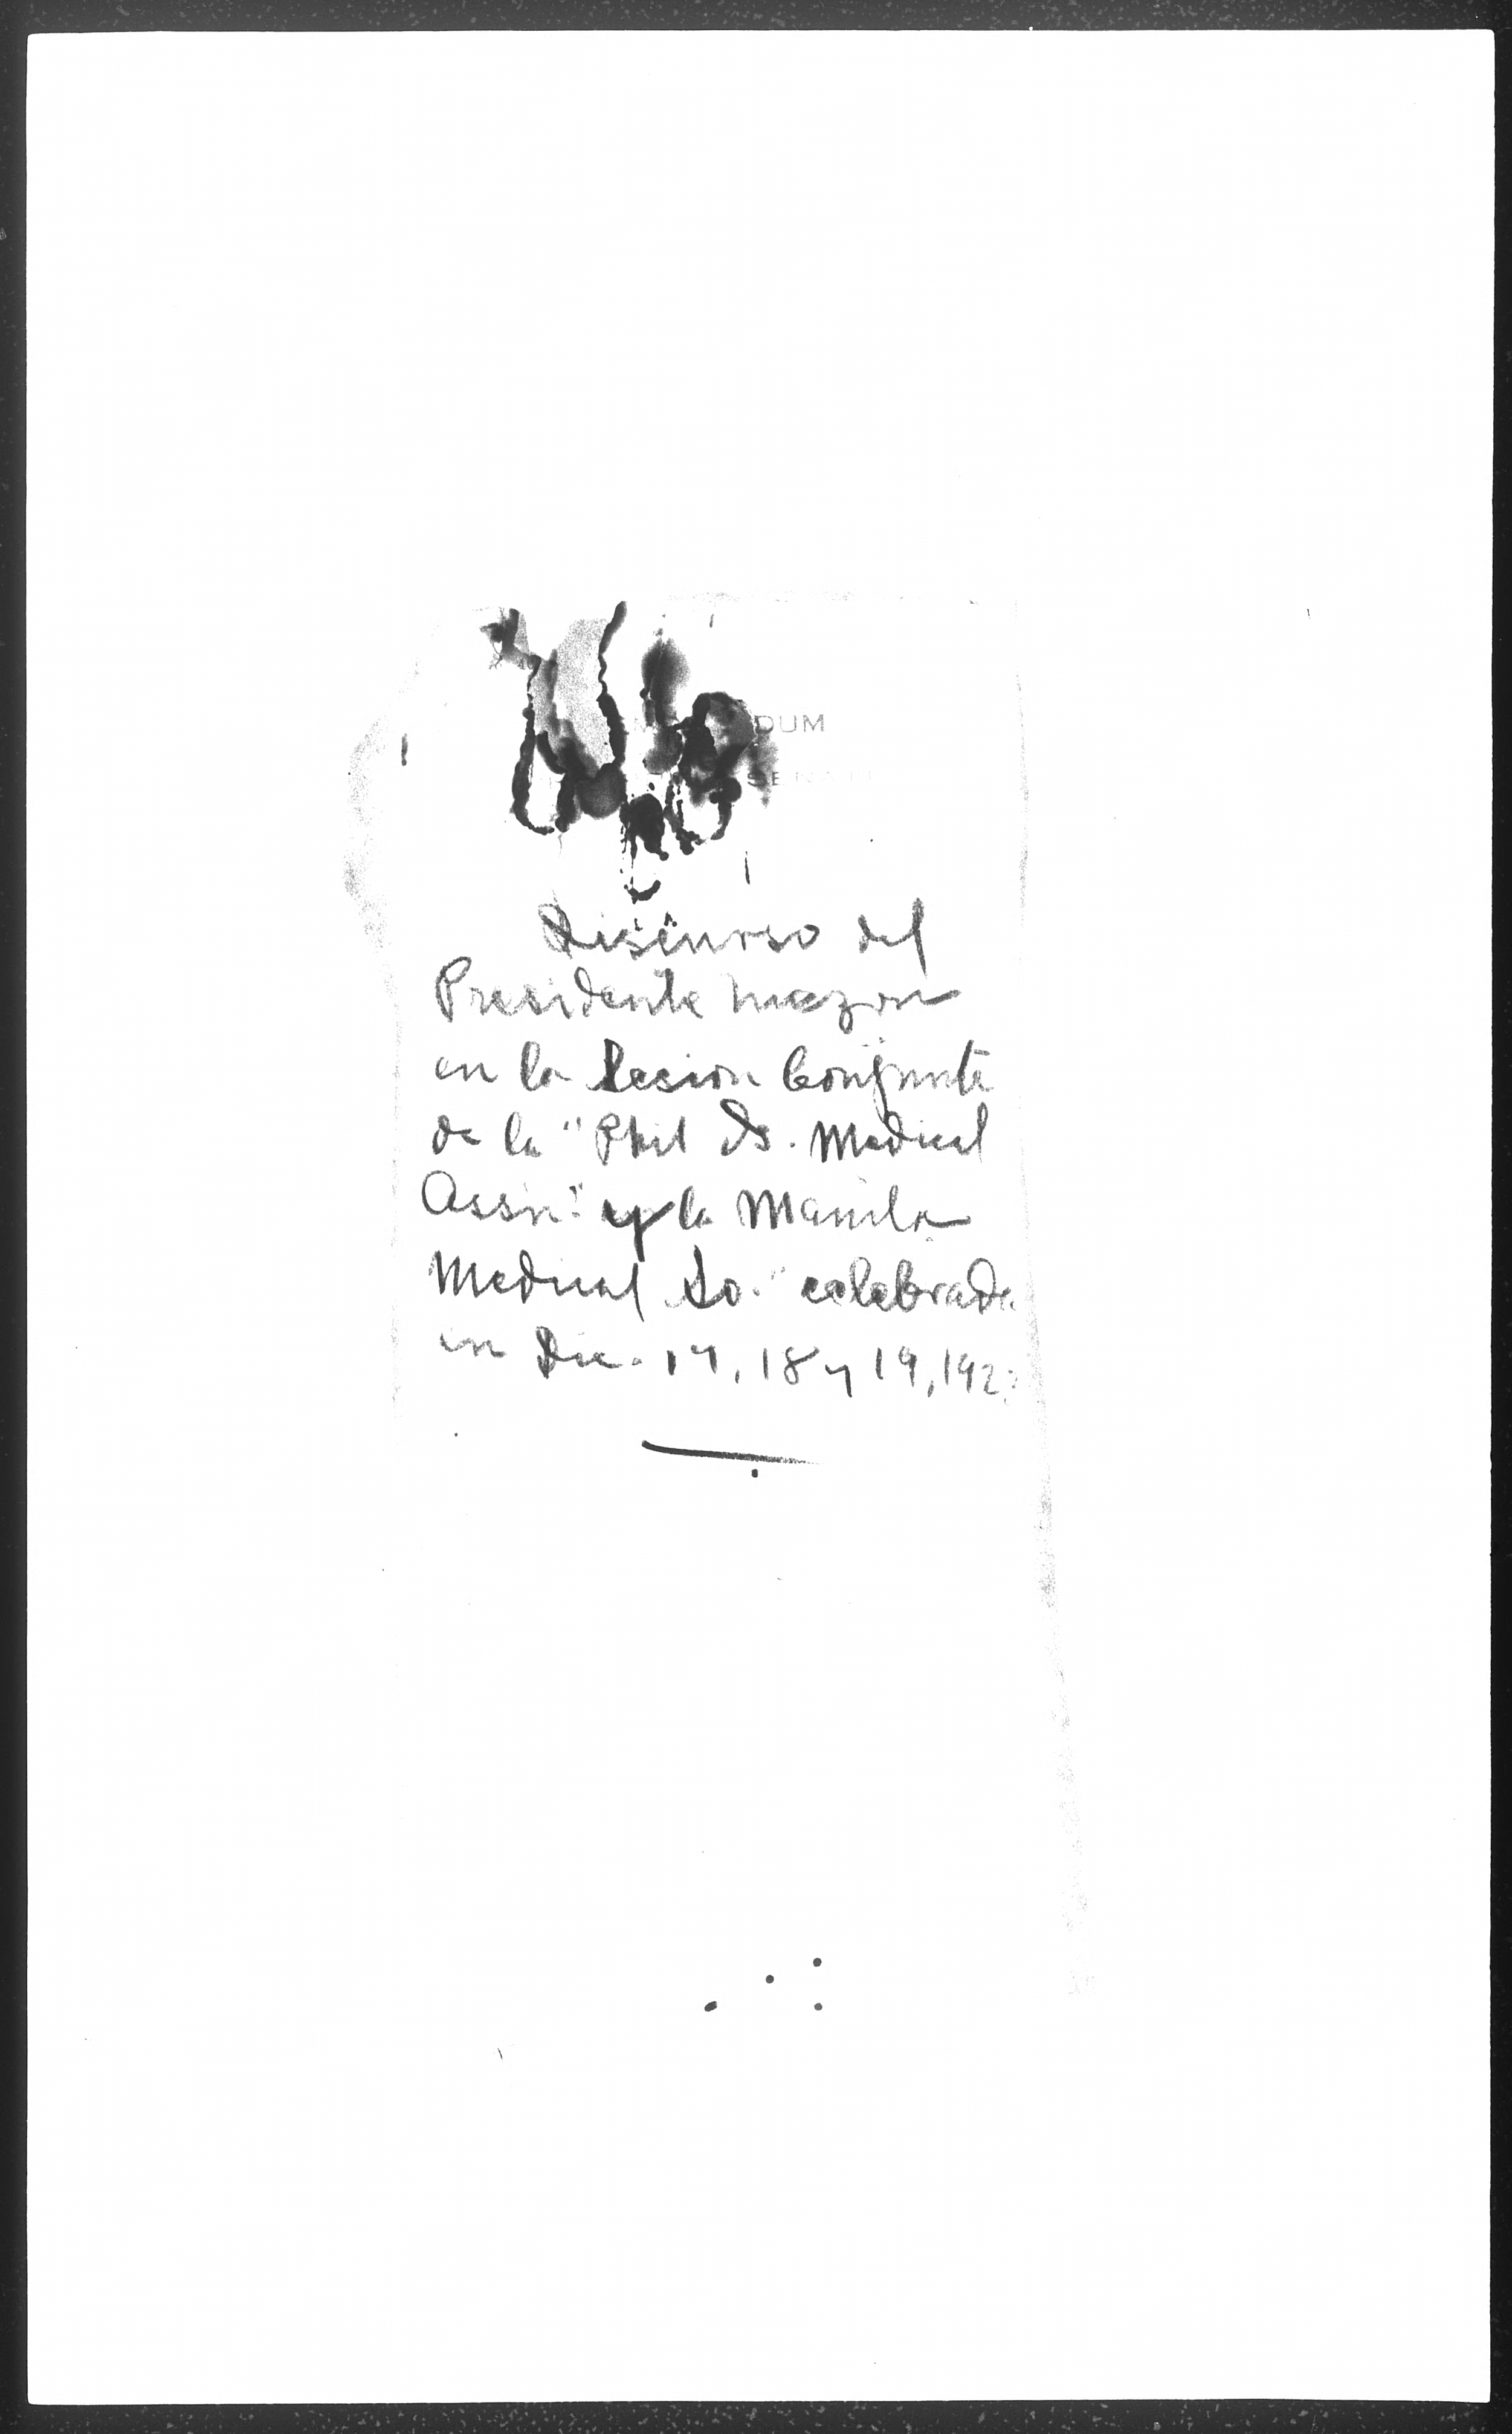 DUM
SEN
Discurso del
Presidente
en la Sesion Conjunta
de la "Phil Is. Medical
Assn." y la Manila
Medical So." celebrada
en Dic. 17, 18 y 19, 192